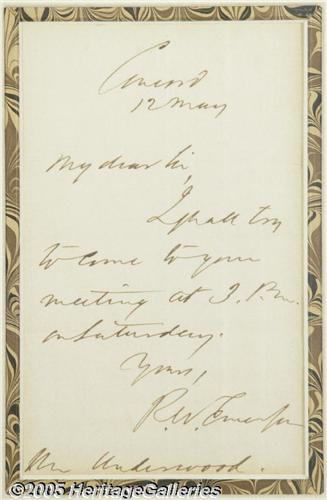 Concord
12 May
My dear Sir,
I shall try
to come to your
meeting at 3. P.m.
on Saturday.
Yours,
R. W. Emerson
Mr Underwood.
©2005 HeritageGalleries